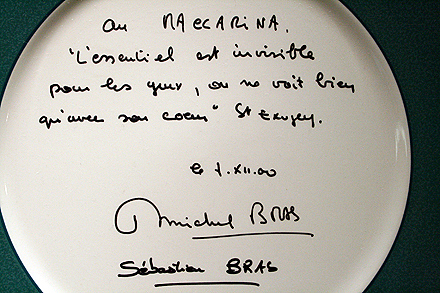 au MACCARINA.
"L'essentiel est invisible
pour les yeux, on ne voit bien
qu'avec son coeur" St Exupery.
le 7.XII.00
Michel BRAS
Sébastien BRAS